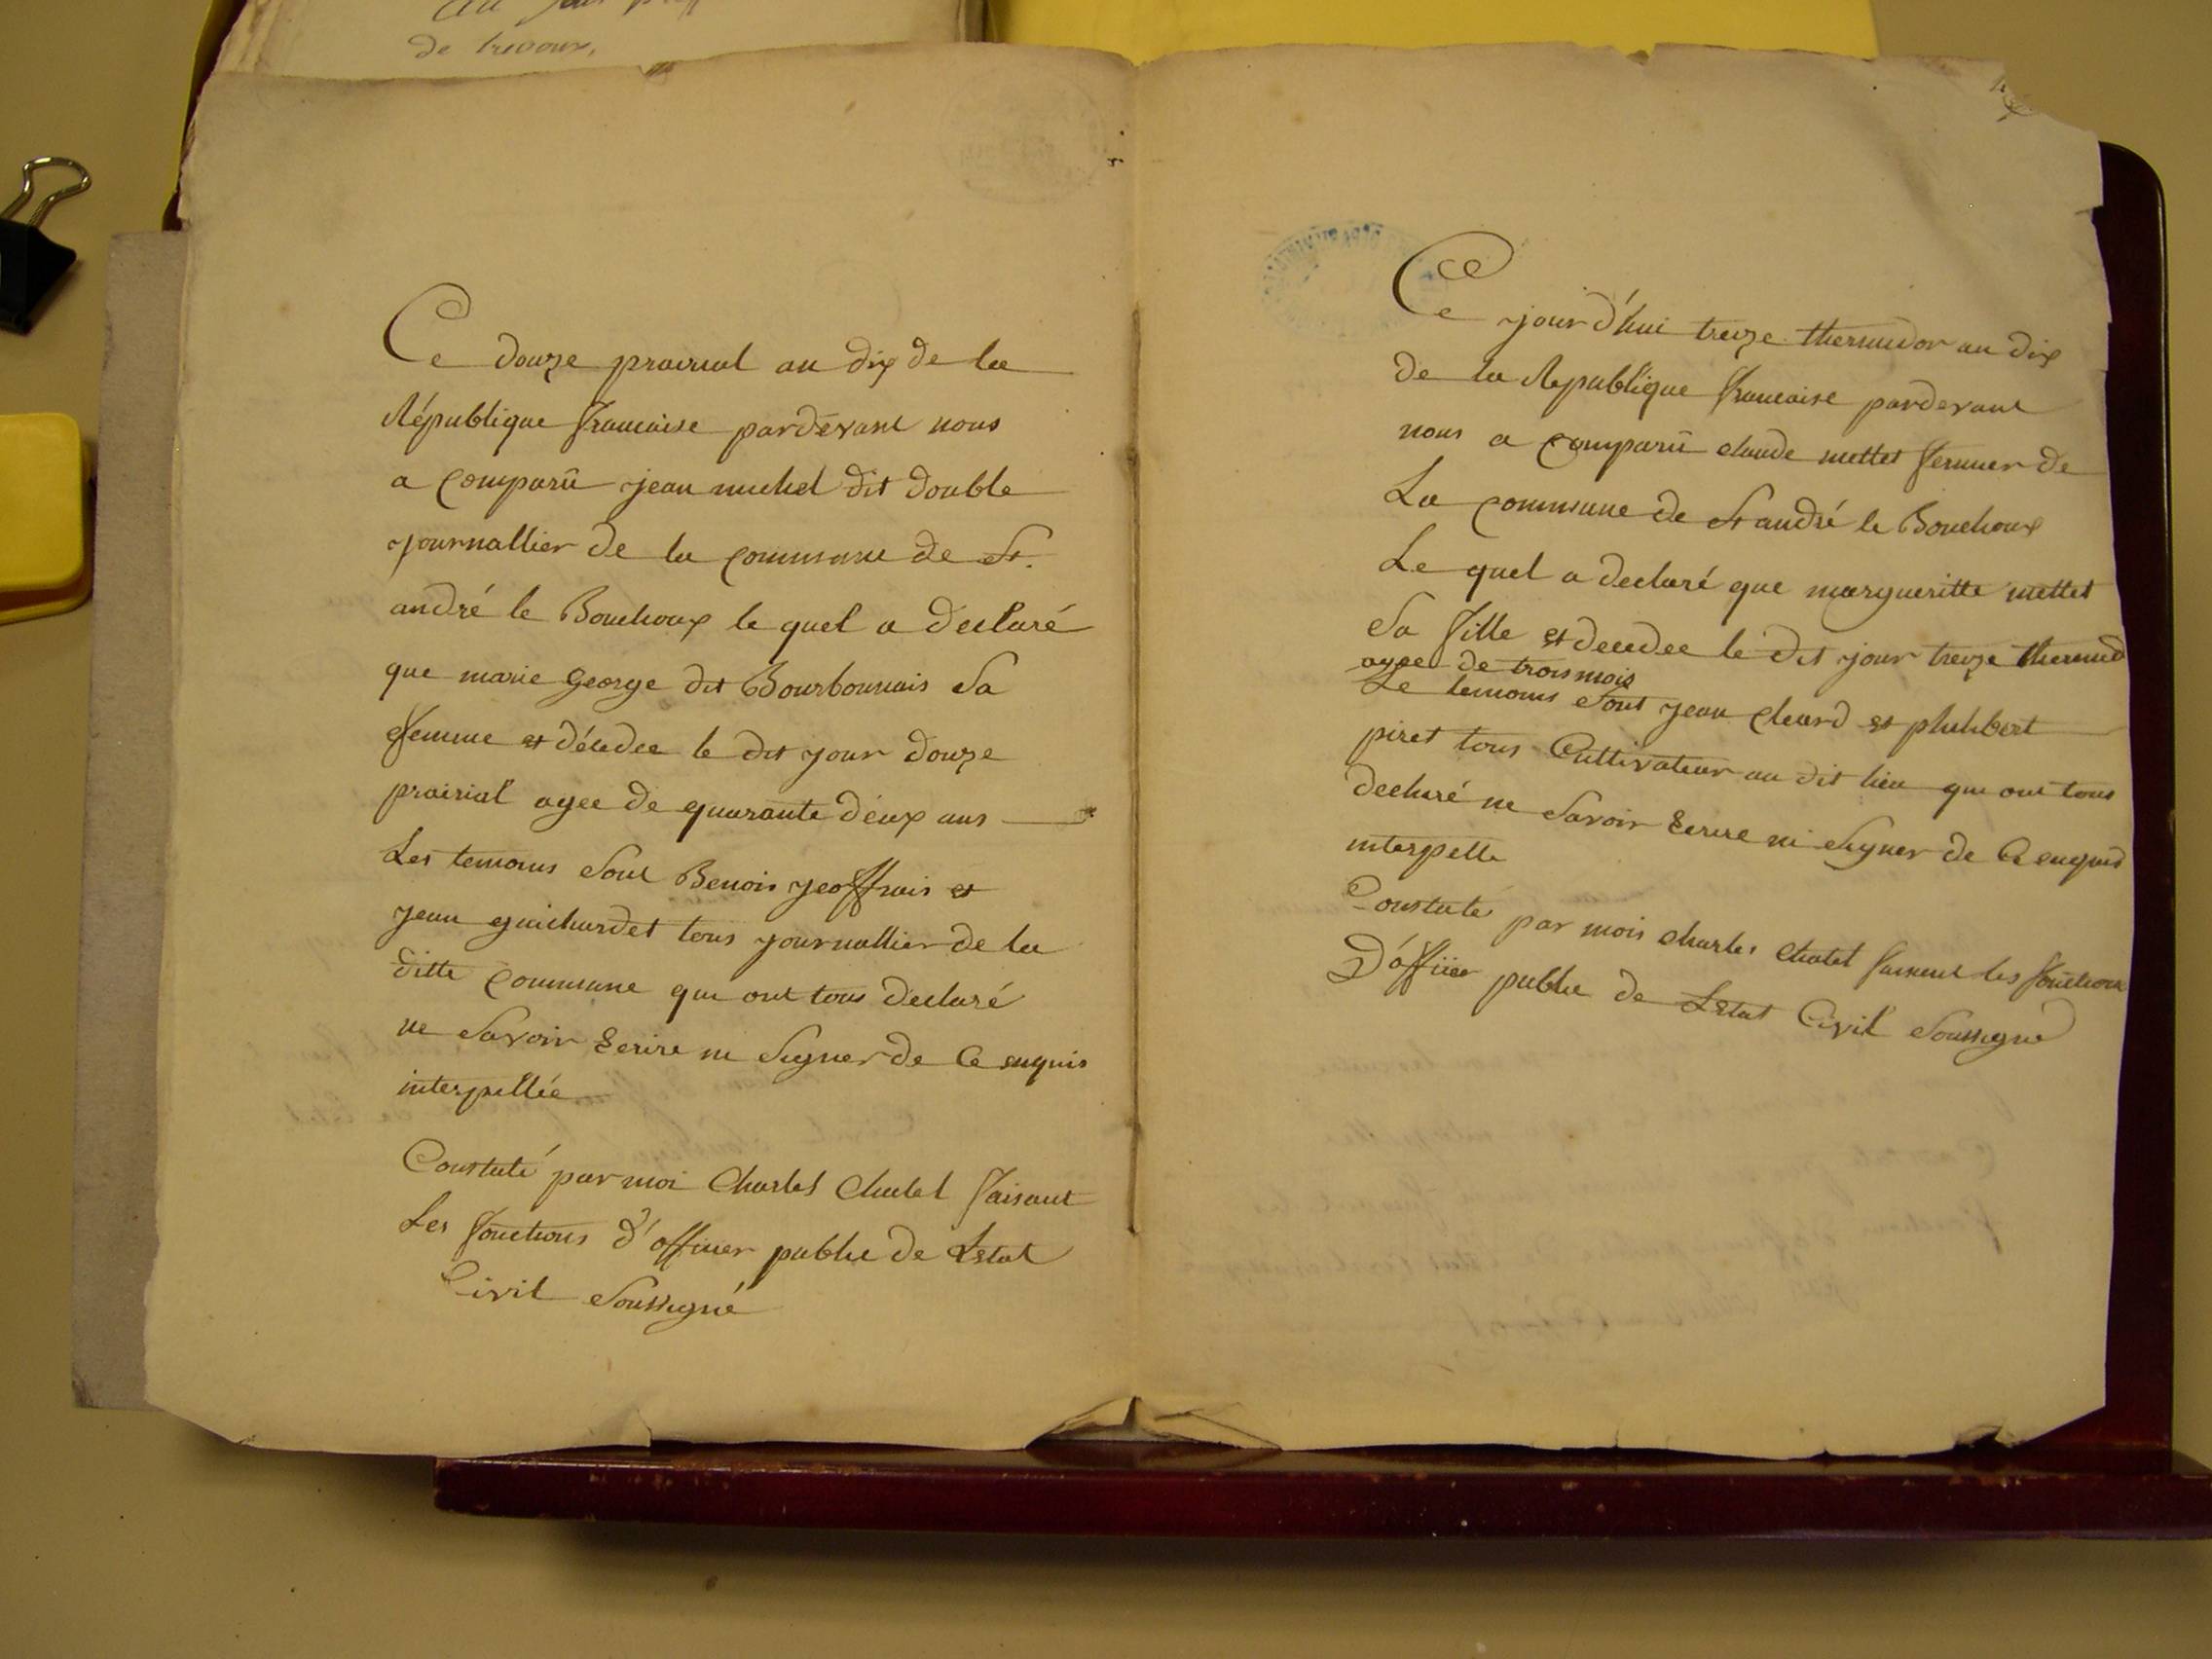 de trevoux,
Ce douze prairial an dix de la
République francaise pardevant nous
a comparû jean michel dit double
journallier de la commune de St.
andré le Bouchoux le quel a declaré
que marie george dit Bourbonnais sa
femme et décedee le dit jour douze
prairial agee de quarante deux ans
Les temoins sont Benois jeoffrais et
jean guichardet tous journallier de la
ditte commune qui ont tous declaré
ne savoir Ecrire ni signer de Ce enquis
interpellée
Constaté par moi Charles Chatel faisant
Les fonctions d'officier public de Letat
Civil soussigné
Ce jourd'hui treize thermidor an dix
de la Republique francaise pardevant
nous a comparû claude mettet fermier de
La commune de St andré le Bouchoux
Le quel a declaré que margueritte mettet
sa fille et decedee le dit jour treize thermid
agee de trois mois
Le temoins sont jean cheard et philibert
piret tous Cultivateur au dit lieu qui ont tous
declaré ne savoir Ecrire ni signer de Ce enquis
interpelle
Constaté par mois charles Chatel faisant les fonctions
D'officier public de LEtat Civil soussigné